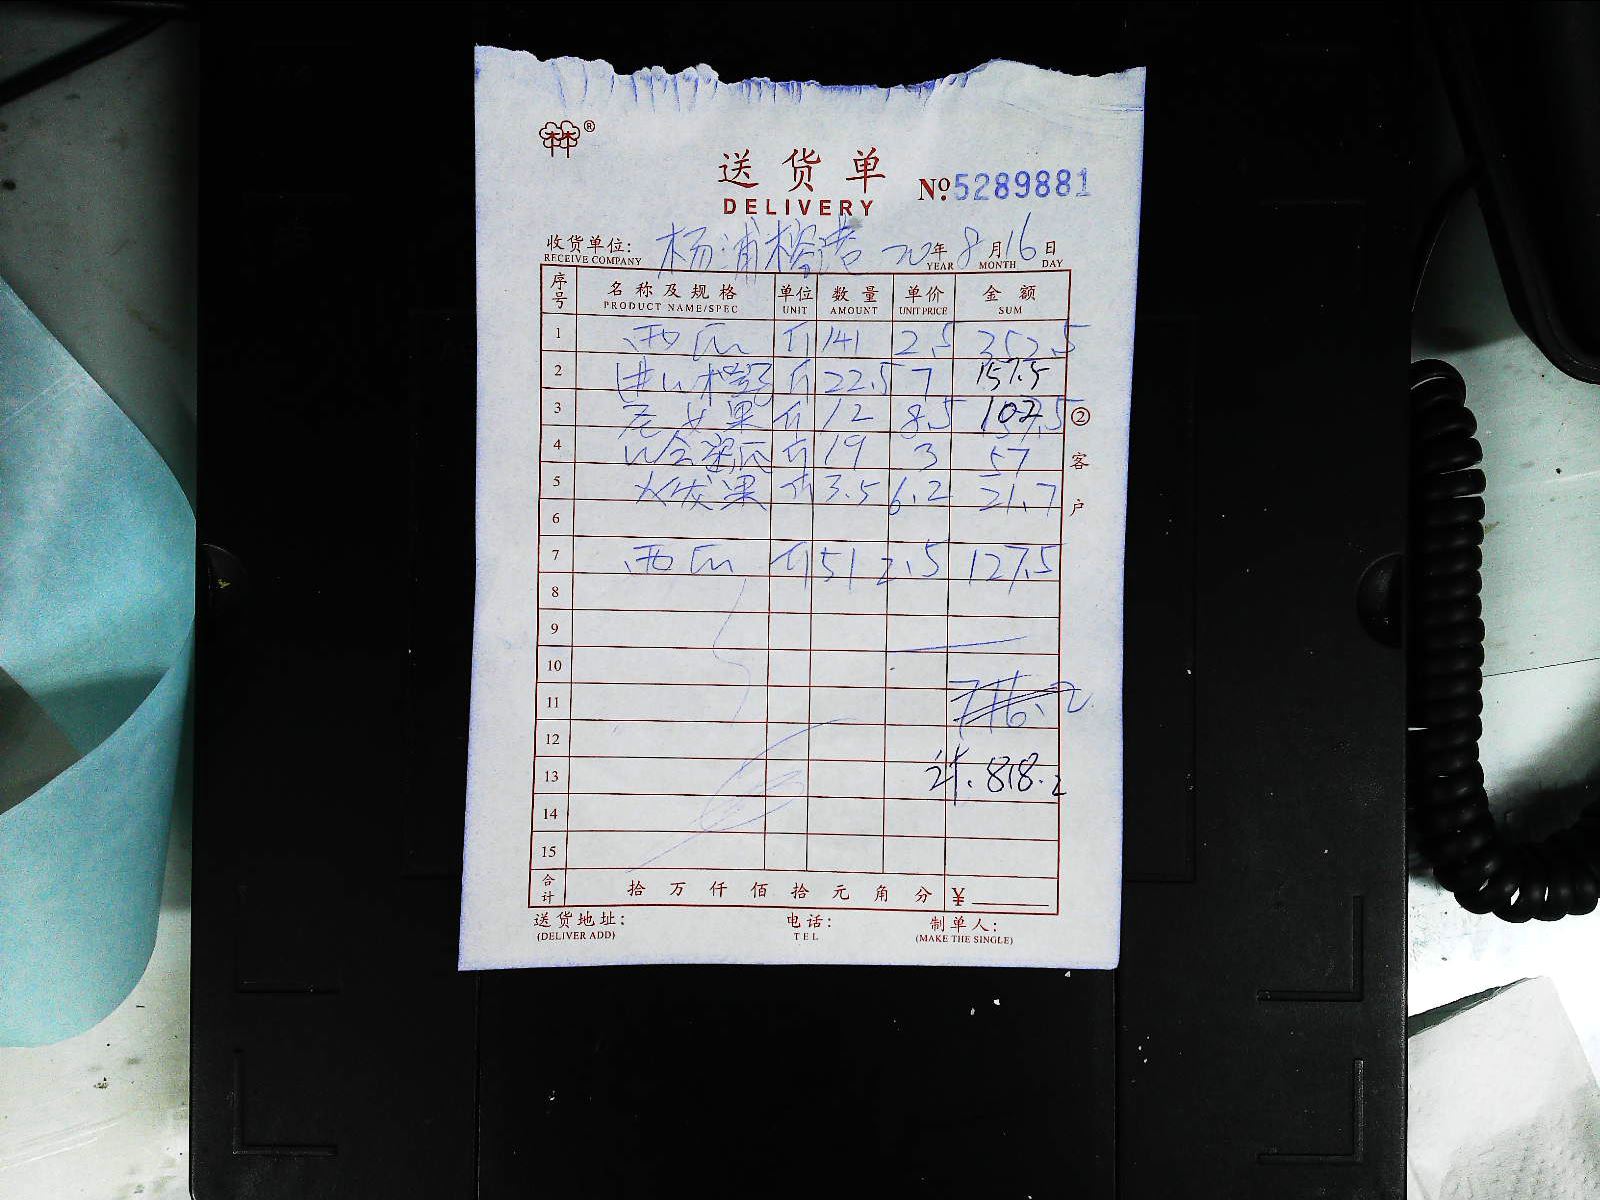 ®
送货单 №5289881
DELIVERY
收货单位: 杨浦榕港 20年8月16日
RECEIVE COMPANY YEAR MONTH DAY
序号 名称及规格 单位 数量 单价 金额
PRODUCT NAME/SPEC UNIT AMOUNT UNIT PRICE SUM
1 西瓜 斤 141 2.5 352.5
2 斤 22.5 7 157.5
3 果 斤 12 8.5 102
4 斤 19 3 57
5 火龙果 斤 3.5 6.2 21.7
6
7 西瓜 斤 51 2.5 127.5
8
9
10
11
12
13 计.818.2
14
15
合计 拾 万 仟 佰 拾 元 角 分 ¥
送货地址: 电话: 制单人:
(DELIVER ADD) TEL (MAKE THE SINGLE)
②客户